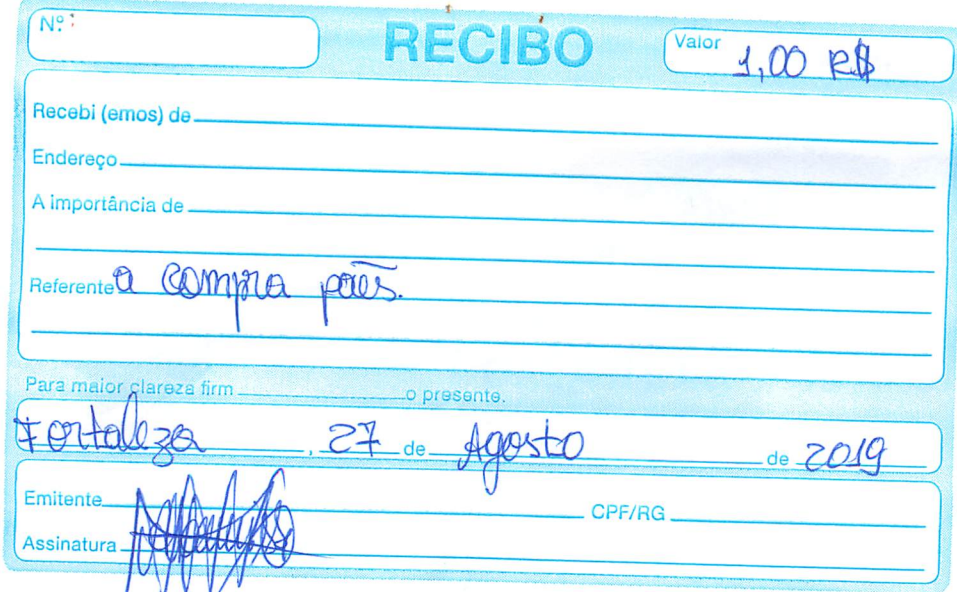 Nº: RECIBO Valor 1,00 R$
Recebi (emos) de
Endereço
A importância de
Referente a compra pães.
Para maior clareza firm o presente.
Fortaleza, 27 de Agosto de 2019
Emitente CPF/RG
Assinatura